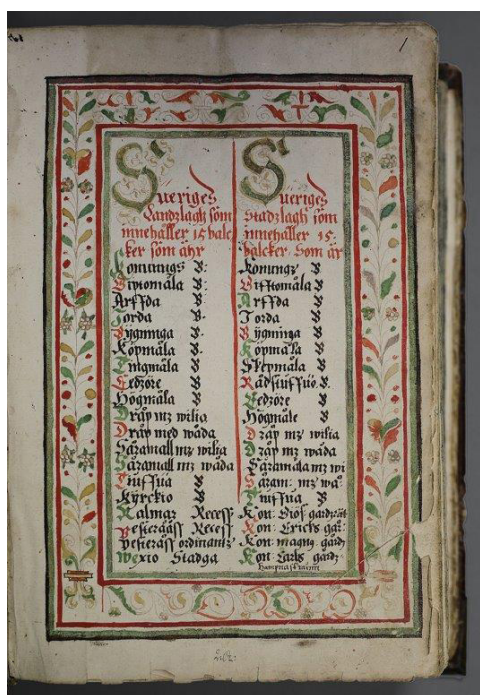 1
Sueriges
Landzlagh som
innehåller 15 balc
ker som ähr
Konungs B.
Giptomåla B.
Arffda B.
Jorda B.
Bygninga B.
Köpmåla B.
Tingmåla B.
Eedzöre B
Högmåla B
Dråp mz wilia
Dråp med wåda
Såramåll mz wilia
Såramåll mz wåda
Tiuffua B
Kyrckio B
Kalmar Recess
Westeråss Recess
Westeråss ordinantz
Wexio Stadga
Sueriges
Stadzlagh som
innehåller 15.
balcker. Som är
Konungz B
Gifftomåla B
Arffda B
Jorda B
Bygninga B
Köpmåla B
Skepmåla B
Rådstuffuo B.
Eedzöre B
Högmåle B
Dråp mz wilia
Dråp mz wåda
Såramåla mz wi
Såram: mz wå:
Tiuffua B
Kon: Oiofs gardzrät
Kon: Ericks går:
Kon: magn: gårdz
Kon: Carls gårdz